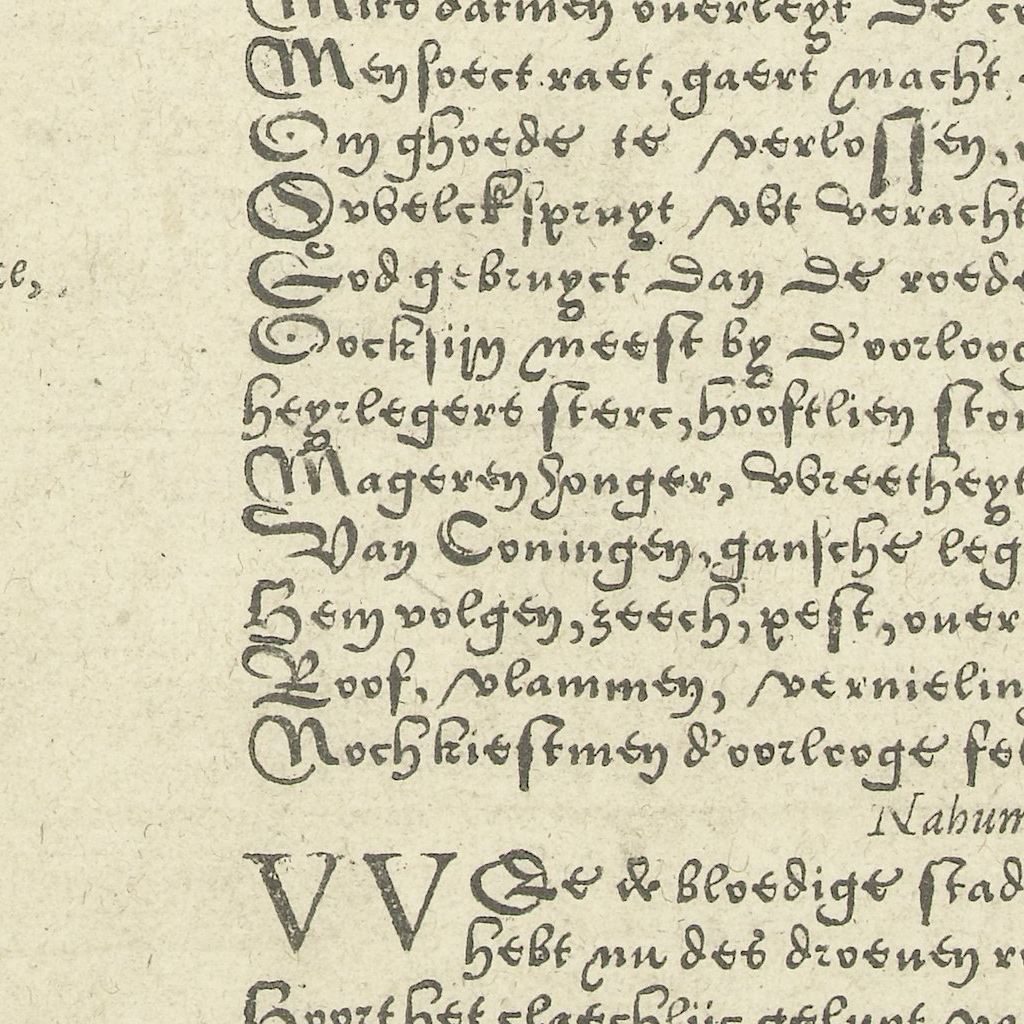 datmen ouerleyt de
Men soect raet, gaert macht
Om ghoede te verlossen,
spruyt wt veracht
God gebruyct dan de roede
Oock sijn meest by d'oorloog
heyrlegers sterc, hooftlien
Mageren honger, wreetheyt
Van Coningen, gansche leg
Hem volgen, zeech, pest, ouer
Roof, vlammen, vernielin
Noch kiestmen d'oorloge fel
Nahum
VVEe de bloedige stad
hebt nu des droeuen
Hoort het claechlijc geluyt va